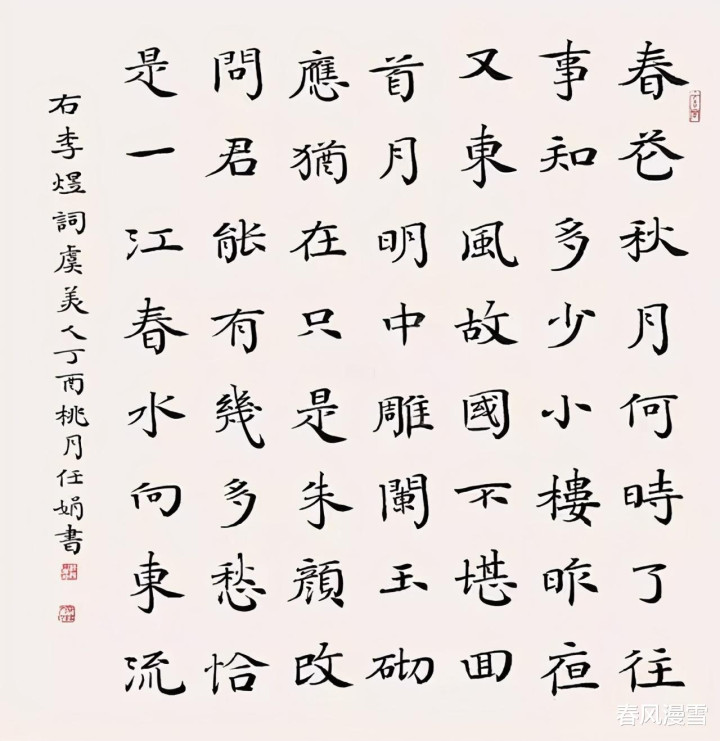 春花秋月何時了往
事知多少小樓昨夜
又東風故國不堪回
首月明中雕闌玉砌
應猶在只是朱顏改
問君能有幾多愁恰
是一江春水向東流
右李煜詞虞美人丁酉桃月任娟書
春风漫雪